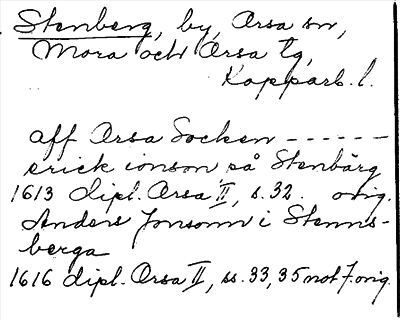 Stenberg, by, Orsa sn,
Mora och Orsa tg,
Kopparb. l.
aff Orsa Socken ------
erick ionson på Stenbärg
1613 dipl. Orsa II, s. 32. orig.
Anders Jonsonn i Stenns-
berga
1616 dipl. Orsa II, ss. 33, 35 not 7. orig.